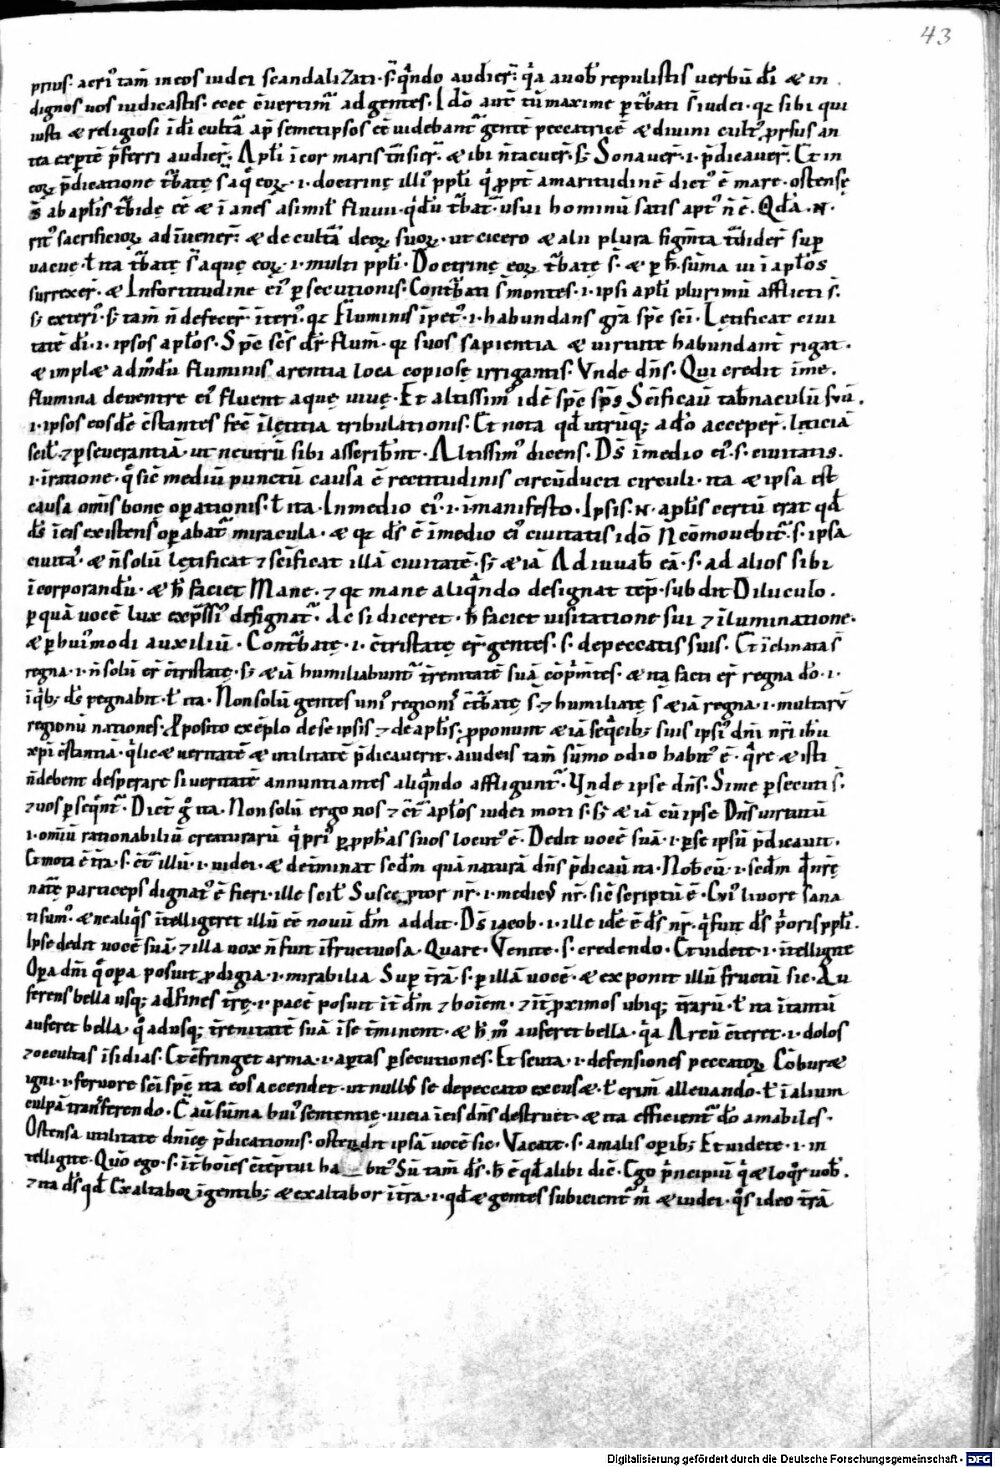 43
prius. acri᷒ tam̄ in eos iudei scandalizati. s̄. qn̄do audier̄. qa auob̄ repulistis uerbū dī & in
dignos uos iudicastis. ecce c̄uertim᷒ ad gentes. Idō aut̄ tū maxime p̄t̄bati s̄ iudei. qz sibi qui
iusti & religiosi ī dī cultā ap̄ semetipsos eē uidebant̄ gentē peccatricē & diuini cult᷒ prsus an
tea exp̄tē p̄ferri audier̄. Apl̄i ī cor maris tn̄sier̄. & ibi n̄ tacuer̄. sꝫ Sonauer̄. i. p̄dicauer̄. Et in
eoꝝ p̄dicatione t̄batę s̄ aq̄ eoꝝ. i. doctrinę illi᷒ ppl̄i q̄ prop̄t amaritudinē dict᷒ ē mare. ostensę
ab apl̄is t̄bidę eē & ī anes asimil̄ fluuii. qd̄ū t̄bat᷒. usui hominū satis apt᷒ n̄ ē. Qd̄a. N.
rit᷒ sacrificioꝝ adīuener̄. & de cultū deoꝝ suoꝝ. ut cicero & alii plura figm̄ta t̄dider̄ sup
uacue. ł ita t̄batę s̄ aquę eoꝝ. i. multi ppl̄i. Doctrinę eoꝝ t̄batę s̄. & p h̄. sūma ui ī apl̄os
surrexer̄. & In fortitudine ei᷒ p̄secutionis. Cont̄bati s̄ montes. i. ipsi apl̄i plurimū afflicti s̄.
sꝫ exteri᷒. sꝫ tam̄ n̄ defecer̄ īteri᷒. qz Fluminis īpet᷒. i. habundans gr̄a sp̄c sc̄i. Lętificat ciui
tatē dī. i. ipsos apl̄os. Sp̄c sc̄s dr̄ flum̄. qz suos sapientia & uirtute habundant̄ rigat.
& implæ admd̄ū fluminis arentia loca copiosę irrigantis. Vnde dn̄s. Qui credit ī me.
flumina deuentre ei᷒ fluent aquę uiuę. Et altissim᷒ idē sp̄c sp̄s Sc̄ificauit tab̄naculū suū.
i. ipsos eosdē c̄stantes fec̄ ī lętitia tribulationis. Et nota qd̄ utrūq; adō acceper̄. lęticiā
scil̄. & pseuerantiā. ut neutrū sibi asserib̄nt. Altissim᷒ dicens. Ds̄ ī medio ei᷒. s. ciuitatis.
i. ī ratione. q̄ sic̄ mediū punctū causa ē rectitudinis circūducti circuli. ita & ipsa est
causa om̄is bonę op̄ationis. ł ita. In medio ei᷒. i. ī manifesto. Ipsis. N. apl̄is certū erat qd̄
ds̄ ī eis existens op̄abat᷒ miracula. & qz ds̄ ē ī medio ei᷒ ciuitatis idō N cōmouebit᷒. s. ipsa
ciuitas. & n̄ solū lętificat & sc̄ificat illā ciuitatē. sꝫ & iā Adiuuab̄ eā. s. ad alios sibi
īcorporandū. & h̄ faciet Mane. & qz mane aliqn̄do designat tēp. subdit Diluculo.
p quā uocē lux exp̄ssi᷒ designat᷒. Ac si diceret. h̄ faciet uisitatione sui & illuminatione.
& p hui᷒modi auxiliū. Cont̄batę. i. c̄tristatę er̄ gentes. s. de peccatis suis. Et ī clinata s̄
regna. i. n̄ solū er̄ c̄tristatę. sꝫ & iā humiliabunt᷒ t̄renitatē suā cōp̄mtes. & ita facti er̄ regna dō. i.
ī qb; ds̄ regnabit. ł ita. Non solū gentes uni᷒ regioni᷒ c̄t̄batę s̄. & humiliatę s̄ & iā regna. i. multarū
regionū nationes. P̄posito exēplo de se ipsis & de apl̄is. pponunt & iā seqc̄ib; suis ipsi᷒ dn̄i nr̄i ih̄u
xp̄i c̄stantiā. q̄lic & ueritatē & utilitatē p̄dicauerit. a iudeis tam̄ sūmo odio habit᷒ ē. qr̄e & isti
n̄ debent desperare si ueritatē annuntiantes aliqn̄do affligunt᷒. Vnde ipse dn̄s. Si me psecuti s̄.
& uos pseqn̄t᷒. Dict̄ g᷒ ita. Non solū ergo nos & c̄t̄ apl̄os iudei moti s̄. sꝫ & iā cū ipse Dn̄s uirtutū
i. omniū rationabiliū creaturarū q̄ pri᷒ p pph̄as suos locut᷒ ē. Dedit uocē suā. i. p se ipsū p̄dicauit.
Et mota ē tr̄a. s. c̄t̄ illū. i. iudei. & det̄minat scd̄m quā naturā dn̄s p̄dicauit ita. Nob̄cū. i. scd̄m q̄ nr̄ę
naturę particeps dignat᷒ ē fieri. ille scil̄. Susceptor nr̄. i. medic᷒ nr̄. sic̄ scriptū ē. Cui᷒ liuore sana
ti sum᷒. & ne aliq̄s ītelligeret illū eē nouū dm̄ addit. Ds̄ iacob. i. ille idē ē ds̄ nr̄. q̄ fuit ds̄ p̄oris ppl̄i.
Ipse dedit uocē suā. & illa uox n̄ fuit ī fructuosa. Quare. Venite. s. credendo. Et uidete. i. ītelligite
Opa dn̄i q̄ opa posuit pdigia. i. mirabilia Sup tr̄a. s. p illā uocē. & exponit illū fructū sic. Au
ferens bella usq; ad fines tr̄ę. i. pacē posuit īt̄ dm̄ & hoīem. & īt̄ pximos ubiq; tr̄arū. ł ita ītantū
auferet bella. q̄ adusq; t̄renitatē suā ī se t̄minent. & h̄ m᷒ auferet bella. qa Arcū c̄teret. i. dolos
& occultas īsidias. Et c̄fringet arma. i. apertas psecutiones. Et scuta. i. defensiones peccatoꝝ Cōburæ
igni. i. feruore sc̄i sp̄c ita eos accendet. ut null᷒ se de peccato excusæ. ł crim̄ alleuando. ł ī alium
culpā transferendo. Et aū sūma hui᷒ sententię. uicia ī eis dn̄s destruet. & ita efficient᷒ dō amabiles.
Ostensa utilitate dn̄icę p̄dicationis. ostendit ipsā uocē sic. Vacate. s. amalis opib; Et uidete. i. in
telligite. Quō ego. s. īt̄ hoīes c̄tēptui ha bit᷒ Sū tam̄ ds̄. h̄ ē qd̄ alibi dic̄. Ego p̄ncipiū q̄ & loqr̄ uob̄.
& ita ds̄ qd̄ Exaltabor ī gentib; & exaltabor ī tr̄a. i. qd̄ & gentes subicient᷒ m̄ & iudei. q̄s ideo tr̄a
Digitalisierung gefördert durch die Deutsche Forschungsgemeinschaft - DFG